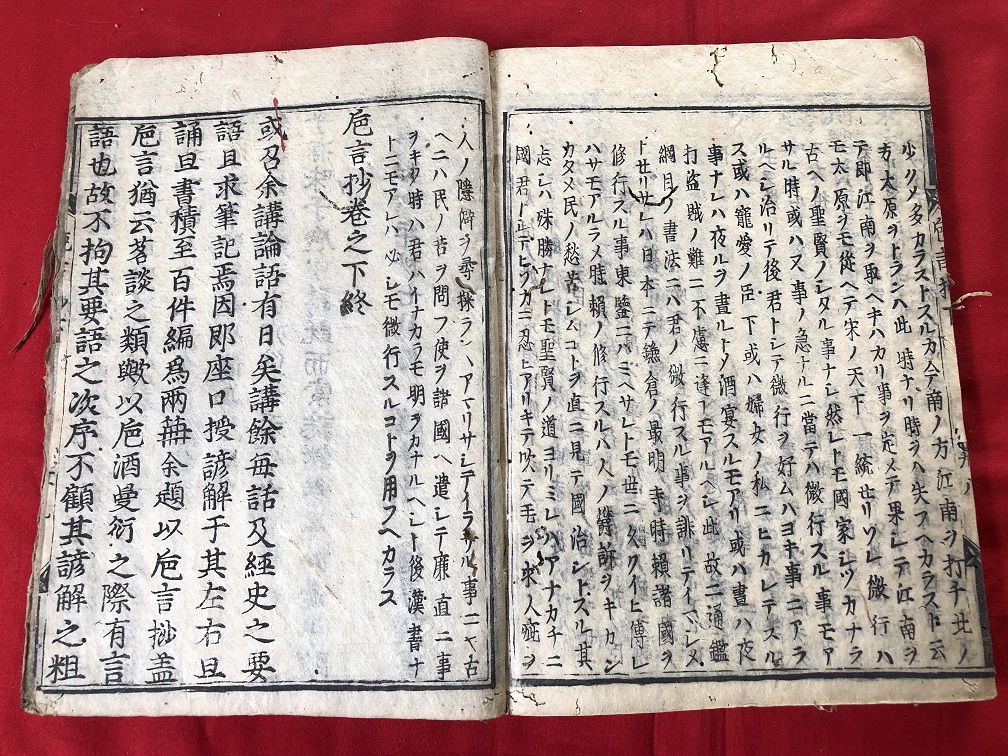 少クメ多カラストスルカ今南ノ方江南ヲ打チ北ノ
方太原ヲトランハ此時ナリ時ヲハ失フヘカラスト云
テ即江南ヲ取ヘキハカリ事ヲ定メテ果シテ江南ヲ
モ太原ヲモ從ヘテ宋ノ天下一統セリソレ微行ハ
古ヘノ聖賢ノシタル事ナシ然レトモ國家シツカナラ
サル時或ハ又事ノ急ナルニ當テハ微行スル事モア
ルヘシ治リテ後君トシテ微行ヲ好ムハヨキ事ニアラ
ス或ハ寵愛ノ臣下或ハ婦女ノ私ニヒカレテスル
事ナレハ夜ルヲ晝ルトノ酒宴スルモアリ或ハ晝ハ夜
打盗賊ノ難ニ不慮ニ逢フモアルヘシ此故ニ通鑑
綱目ノ書法ニハ君ノ微行スル事ヲ誹リテイマシメ
トセリサレハ日本ニテ鎌倉ノ最明寺時頼諸國ヲ
修行スル事東鑒ニハミヘサレトモ世ニ久クイヒ傳レ
ハサモアルラメ時頼ノ修行スルハ人ノ欝訴ヲキカン
カタメ民ノ愁苦シムコトヲ直ニ見テ國治シトスル其
志シハ殊勝ナレトモ聖賢ノ道ヨリミレハアナカチニ
國君
人ノ隠僻ヲ尋採ラン、アマリサシテイラサル事ニヤ古
ヘニハ民ノ苦ヲ問フ使ヲ諸國ヘ遣シテ廉直ニ事
ヲキク時ハ君ハイナカラモ明ヲカナルヘシト後漢書ナ
トニモアレハ必シモ微行スルコトヲ用フヘカラス
巵言抄卷之下終
或召余講論語有日矣講餘毎話及經史之要
語且求筆記焉因即座口授諺解于其左右且
誦且書積至百件編爲兩冊余題以巵言抄盖
巵言猶云茗談之類歟以巵酒曼衍之際有言
語也故不拘其要語之次序不顧其諺解之粗